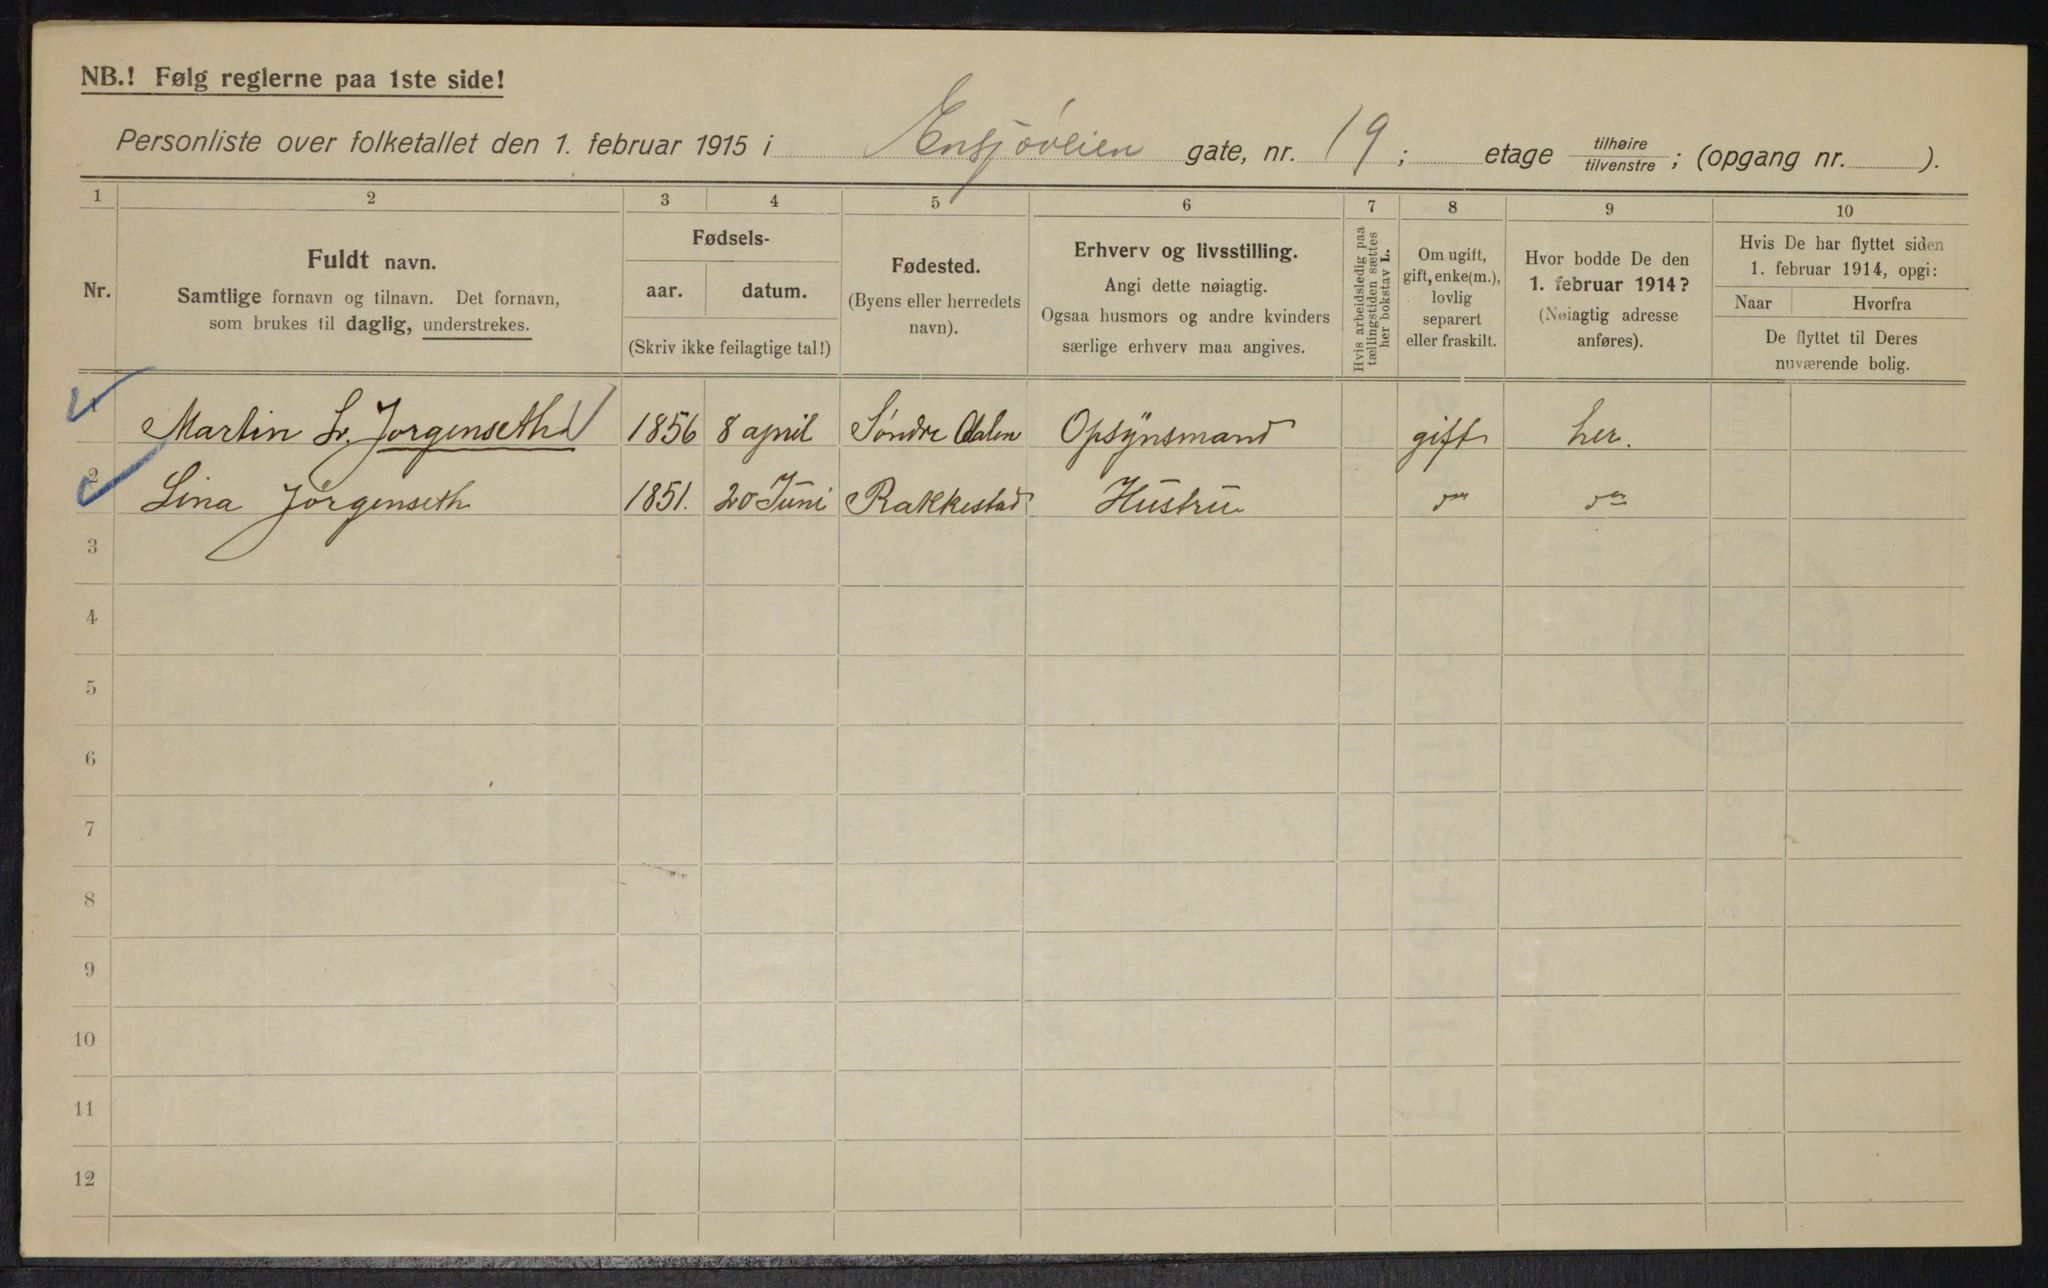 NB.! Følg reglerne paa 1ste side!
Personliste over folketallet den 1. februar 1915 i Ensjøveien gate, nr. 19; etage tilhøire/tilvenstre; (opgang nr. ).
1 2 3 4 5 6 7 8 9 10
Nr.
Fuldt navn.
Samtlige fornavn og tilnavn. Det fornavn,
som brukes til daglig, understrekes.
Fødsels-
aar. datum.
(Skriv ikke feilagtige tal!)
Fødested.
(Byens eller herredets
navn).
Erhverv og livsstilling.
Angi dette nøiagtig.
Ogsaa husmors og andre kvinders
særlige erhverv maa angives.
Hvis arbeidsledig paa
tællingstiden sættes
her bokstav L.
Om ugift,
gift, enke(m.),
lovlig
separert
eller fraskilt.
Hvor bodde De den
1. februar 1914?
(Nøiagtig adresse
anføres).
Hvis De har flyttet siden
1. februar 1914, opgi:
Naar Hvorfra
De flyttet til Deres
nuværende bolig.
1 Martin L. Jorgenseth 1856 8 april Søndre Odalen Opsynsmand gift her.
2 Lina Jørgenseth 1851. 20 Juni Rakkestad Hustru
3
4
5
6
7
8
9
10
11
12